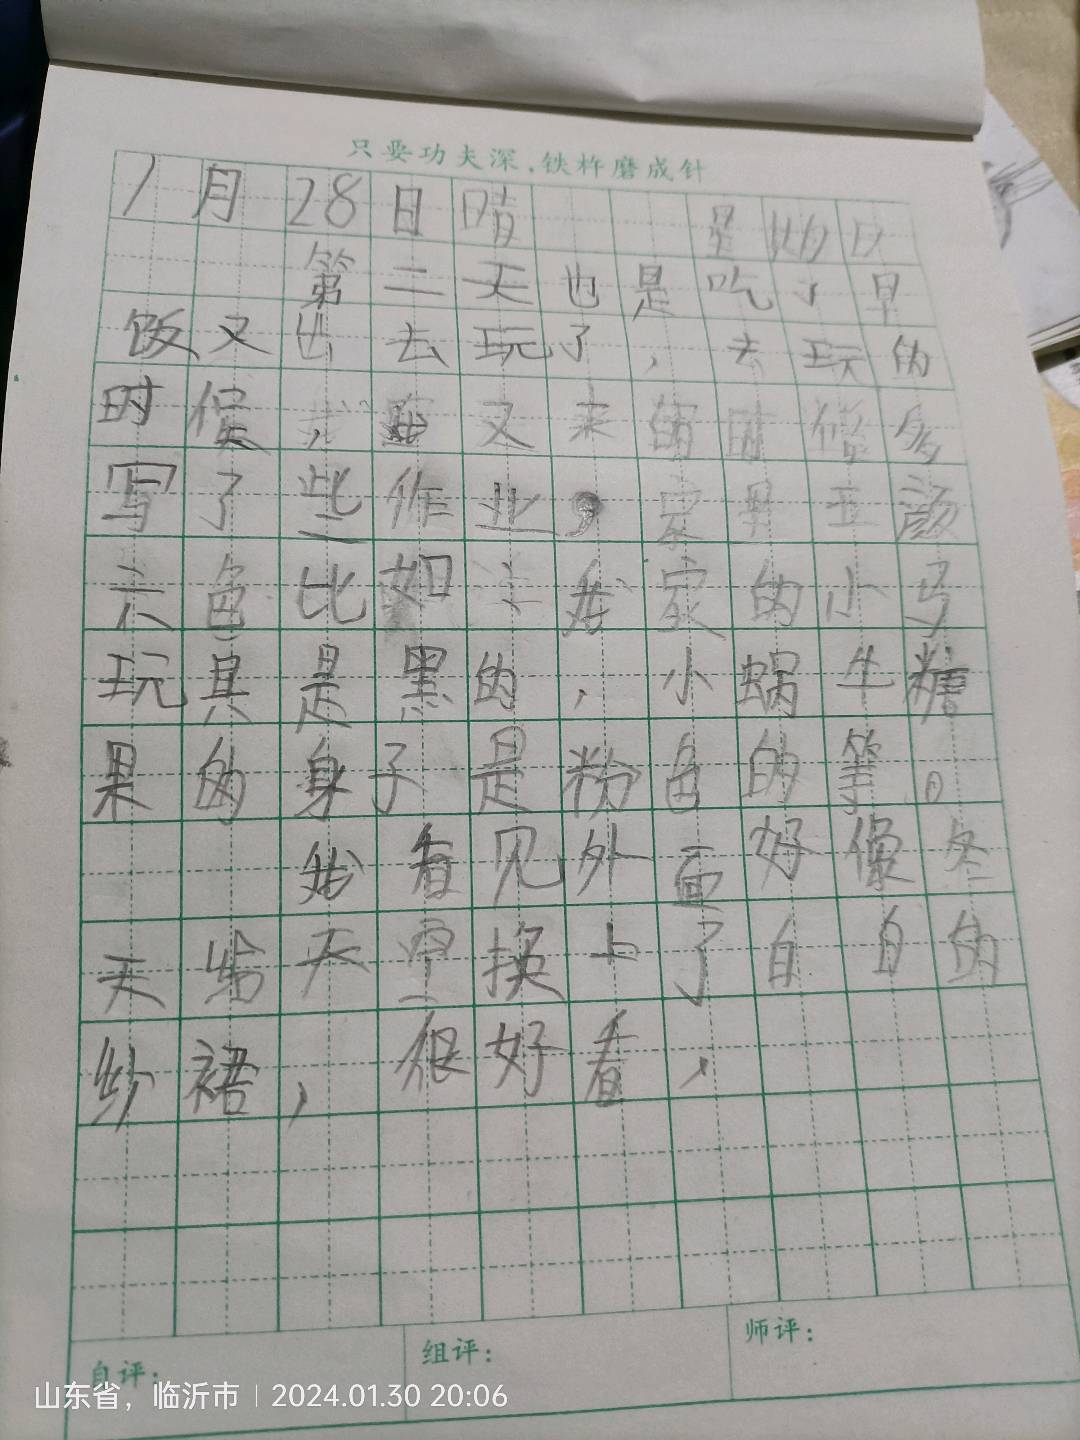 只要功夫深，铁杵磨成针
1月28日晴 星期日
第二天也是吃了早
饭又出去玩了，去玩的
时候，又来的时候
写了些作业，五颜
六色比如我家的小马
玩具是黑的，小蜗牛糖
果的身子是粉色的等。
我看见外面好像冬
天给天空换上了白白的
纱裙，很好看，
自评：
组评：
师评：
山东省，临沂市 | 2024.01.30 20:06